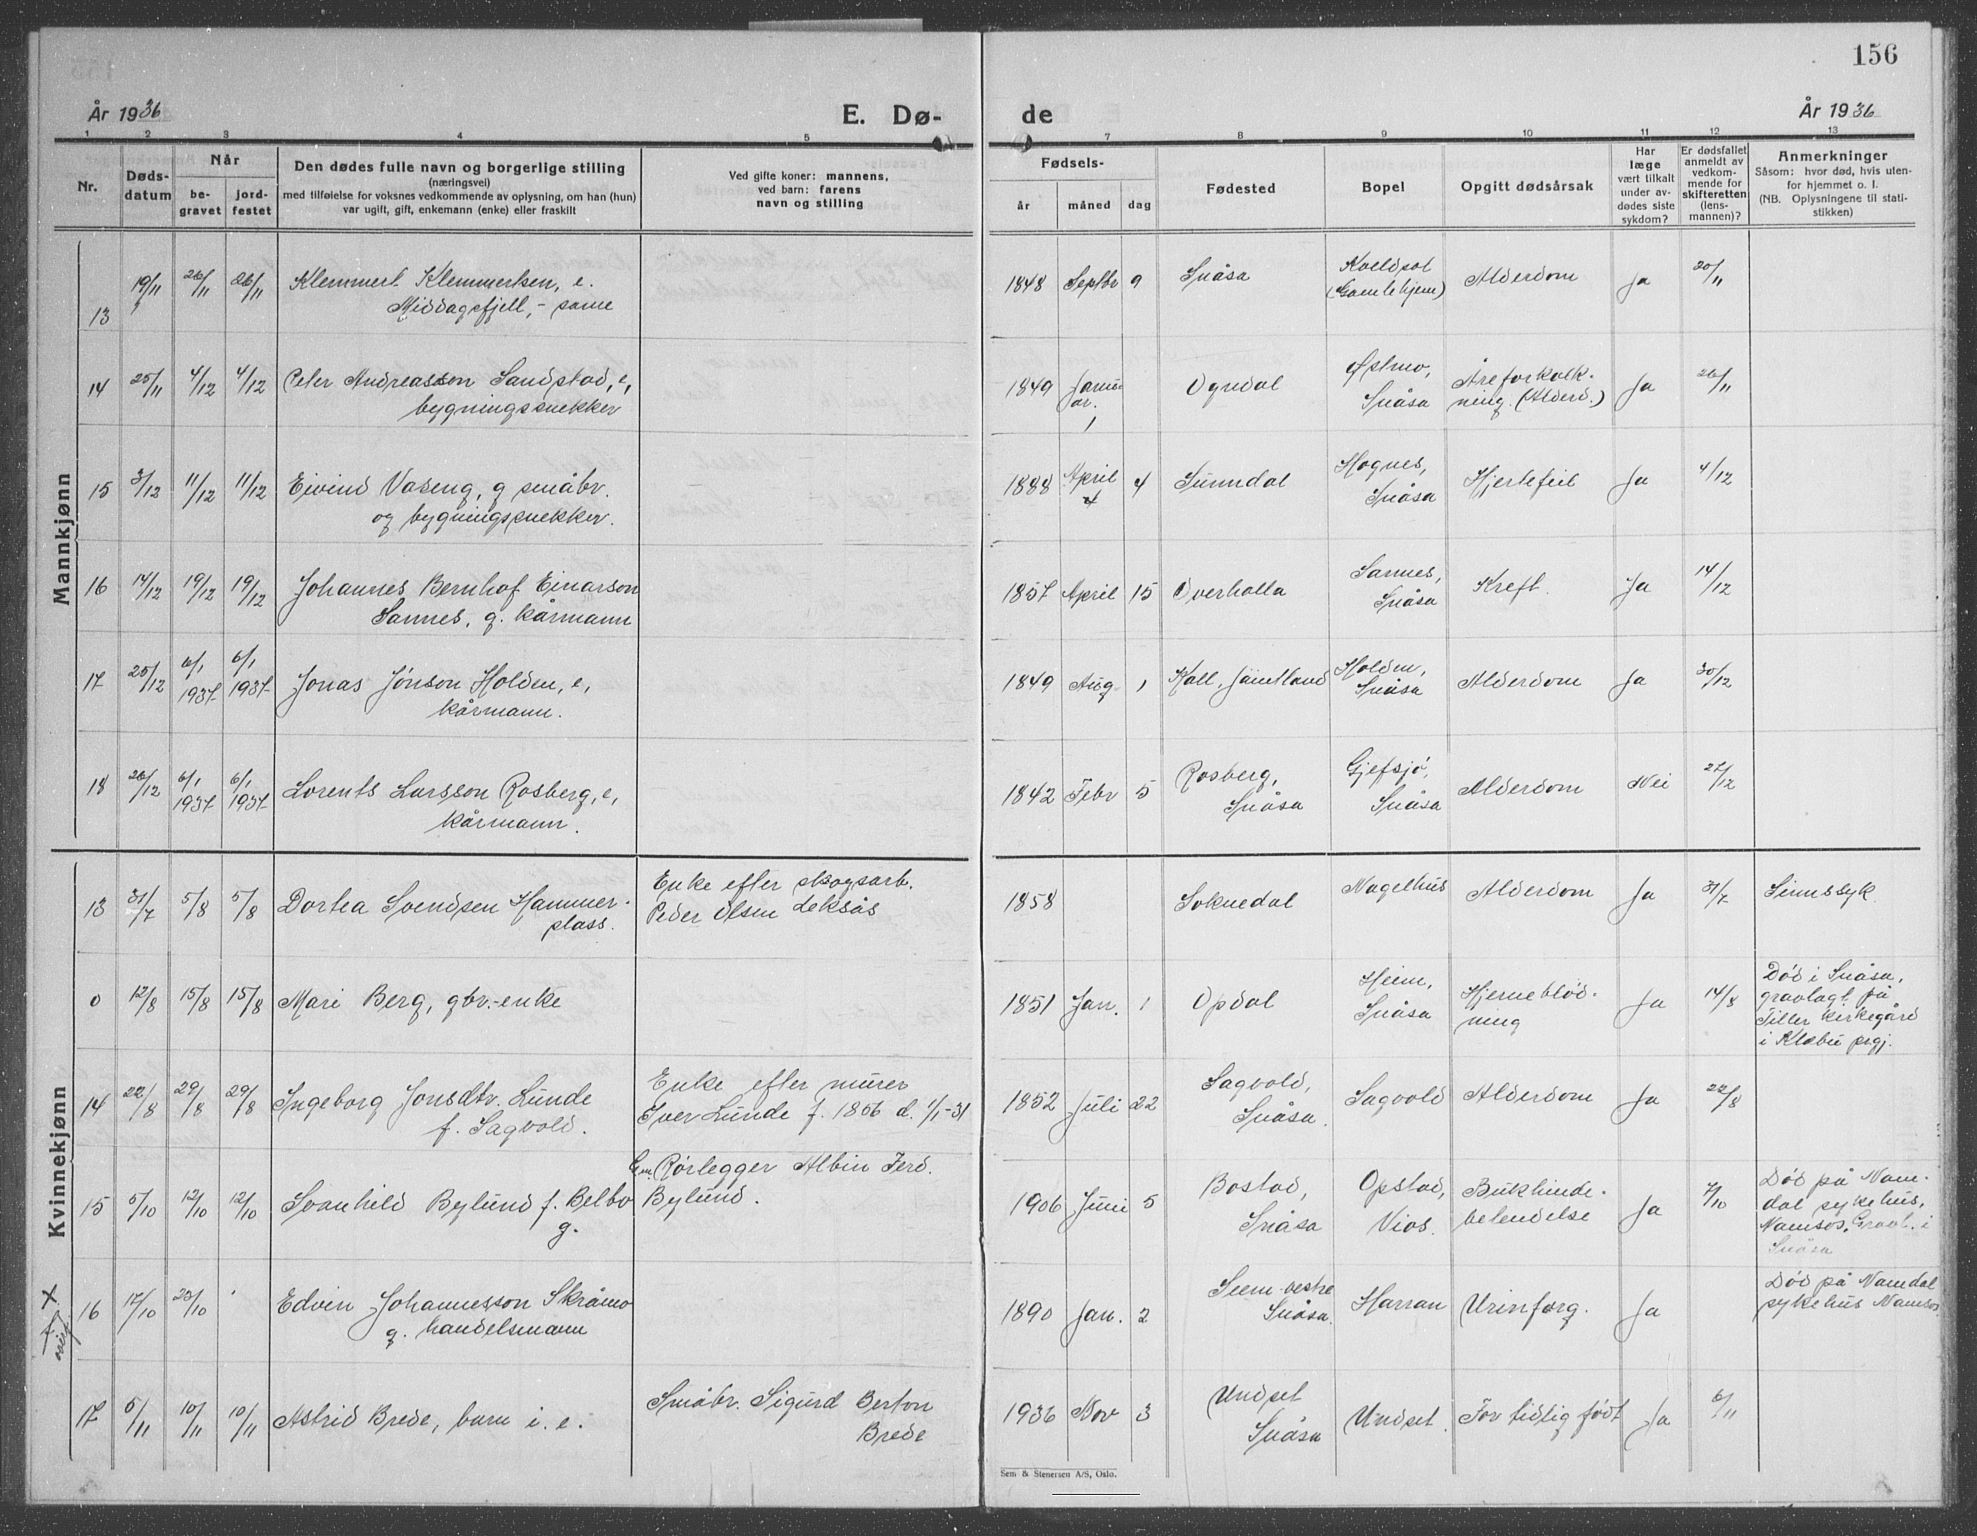 156
År 1936
E. Dø-
de
År 1936
1 2 3 4 5 7 8 9 10 11 12 13
Nr.
Døds-
datum
Når
be-
gravet
jord-
festet
Den dødes fulle navn og borgerlige stilling
(næringsvei)
med tilføielse for voksnes vedkommende av oplysning, om han (hun)
var ugift, gift, enkemann (enke) eller fraskilt
Ved gifte koner: mannens,
ved barn: farens
navn og stilling
Fødsels-
år måned dag
Fødested
Bopel
Opgitt dødsårsak
Har
læge
vært tilkalt
under av-
dødes siste
sykdom?
Er dødsfallet
anmeldt av
vedkom-
mende for
skifteretten
(lens-
mannen)?
Anmerkninger
Såsom: hvor død, hvis uten-
for hjemmet o. l.
(NB. Oplysningene til stati-
stikken)
Mannkjønn
13 19/11 26/11 26/11 Klemmert Klemmertsen, e.
Middagsfjell, - same
1848 Septbr 9 Snåsa
Kveldsol
(Gamlehjem)
Alderdom Ja 20/11
14 25/11 4/12 4/12 Peter Andreasson Sandstad, e,
bygningssnekker
1849 Janu-
ar. 1
Ogndal
Østmo,
Snåsa
Åreforkalk-
ning. (Alderd.)
Ja 26/11
15 3/12 11/12 11/12 Eivind Vaseng, g småbr.
og bygningssnekker.
1888 April 4 Sunndal
Hognes,
Snåsa
Hjertefeil Ja 4/12
16 14/12 19/12 19/12 Johannes Bernhof Einarson
Sannes, g. kårmann
1857 April 15 Overhalla
Sannes,
Snåsa
Kreft. Ja 14/12
17 25/12 6/1 1937 6/1 1937 Jonas Jónson Holden, e,
kårmann.
1849 Aug 1 Kall, Jämtland
Holden,
Snåsa
Alderdom Ja 30/12
18 26/12 6/1 1937 6/1 1937 Lorents Larsson Rosberg, e,
kårmann.
1842 Febr 5
Rosberg,
Snåsa
Gjefsjø,
Snåsa
Alderdom Nei 27/12
Kvinnekjønn
13 31/7 5/8 5/8 Dortea Svendsen Hammer-
plass.
Enke efter skogsarb.
Peder Olsen Leksås
1858 Soknedal Nagelhus Alderdom Ja 31/7 Sinnssyk.
0 12/8 15/8 15/8 Mari Berg, gbr.-enke
1851 Jan. 1 Opdal
Heim,
Snåsa
Hjerneblød-
ning
Ja 14/8
Død i Snåsa,
gravlagt på
Tiller kirkegård
i Klæbu prgj.
14 22/8 29/8 29/8 Ingeborg Jonsdtr. Lunde
f. Sagvold.
Enke efter murer
Iver Lunde f. 1856 d. 1/1-31
1852 Juli 22
Sagvold,
Snåsa.
Sagvold Alderdom Ja 22/8
15 5/10 12/10 12/10 Svanhild Bylund f. Belbo
g.
Gm. Rørlegger Albin Ferd.
Bylund.
1906 Juni 5
Bostad,
Snåsa
Opstad,
Vios.
Bukhinde-
betendelse
Ja 7/10
Død på Nam-
dal sykehus,
Namsos. Gravl. i
Snåsa
16 17/10 23/10 Edvin Johannesson Skråmo
g. handelsmann
1890 Jan. 2
Seem vestre
Snåsa.
Harran Urinforg. Ja
Død på Namdal
sykehus Namsos
17 5/11 10/11 10/11 Astrid Brede, barn i. e.
Småbr. Sigurd Berton
Brede
1936 Nov 3
Undset
Snåsa
Undset. For tidlig født Ja 6/11
Sem & Stenersen A/S, Oslo.